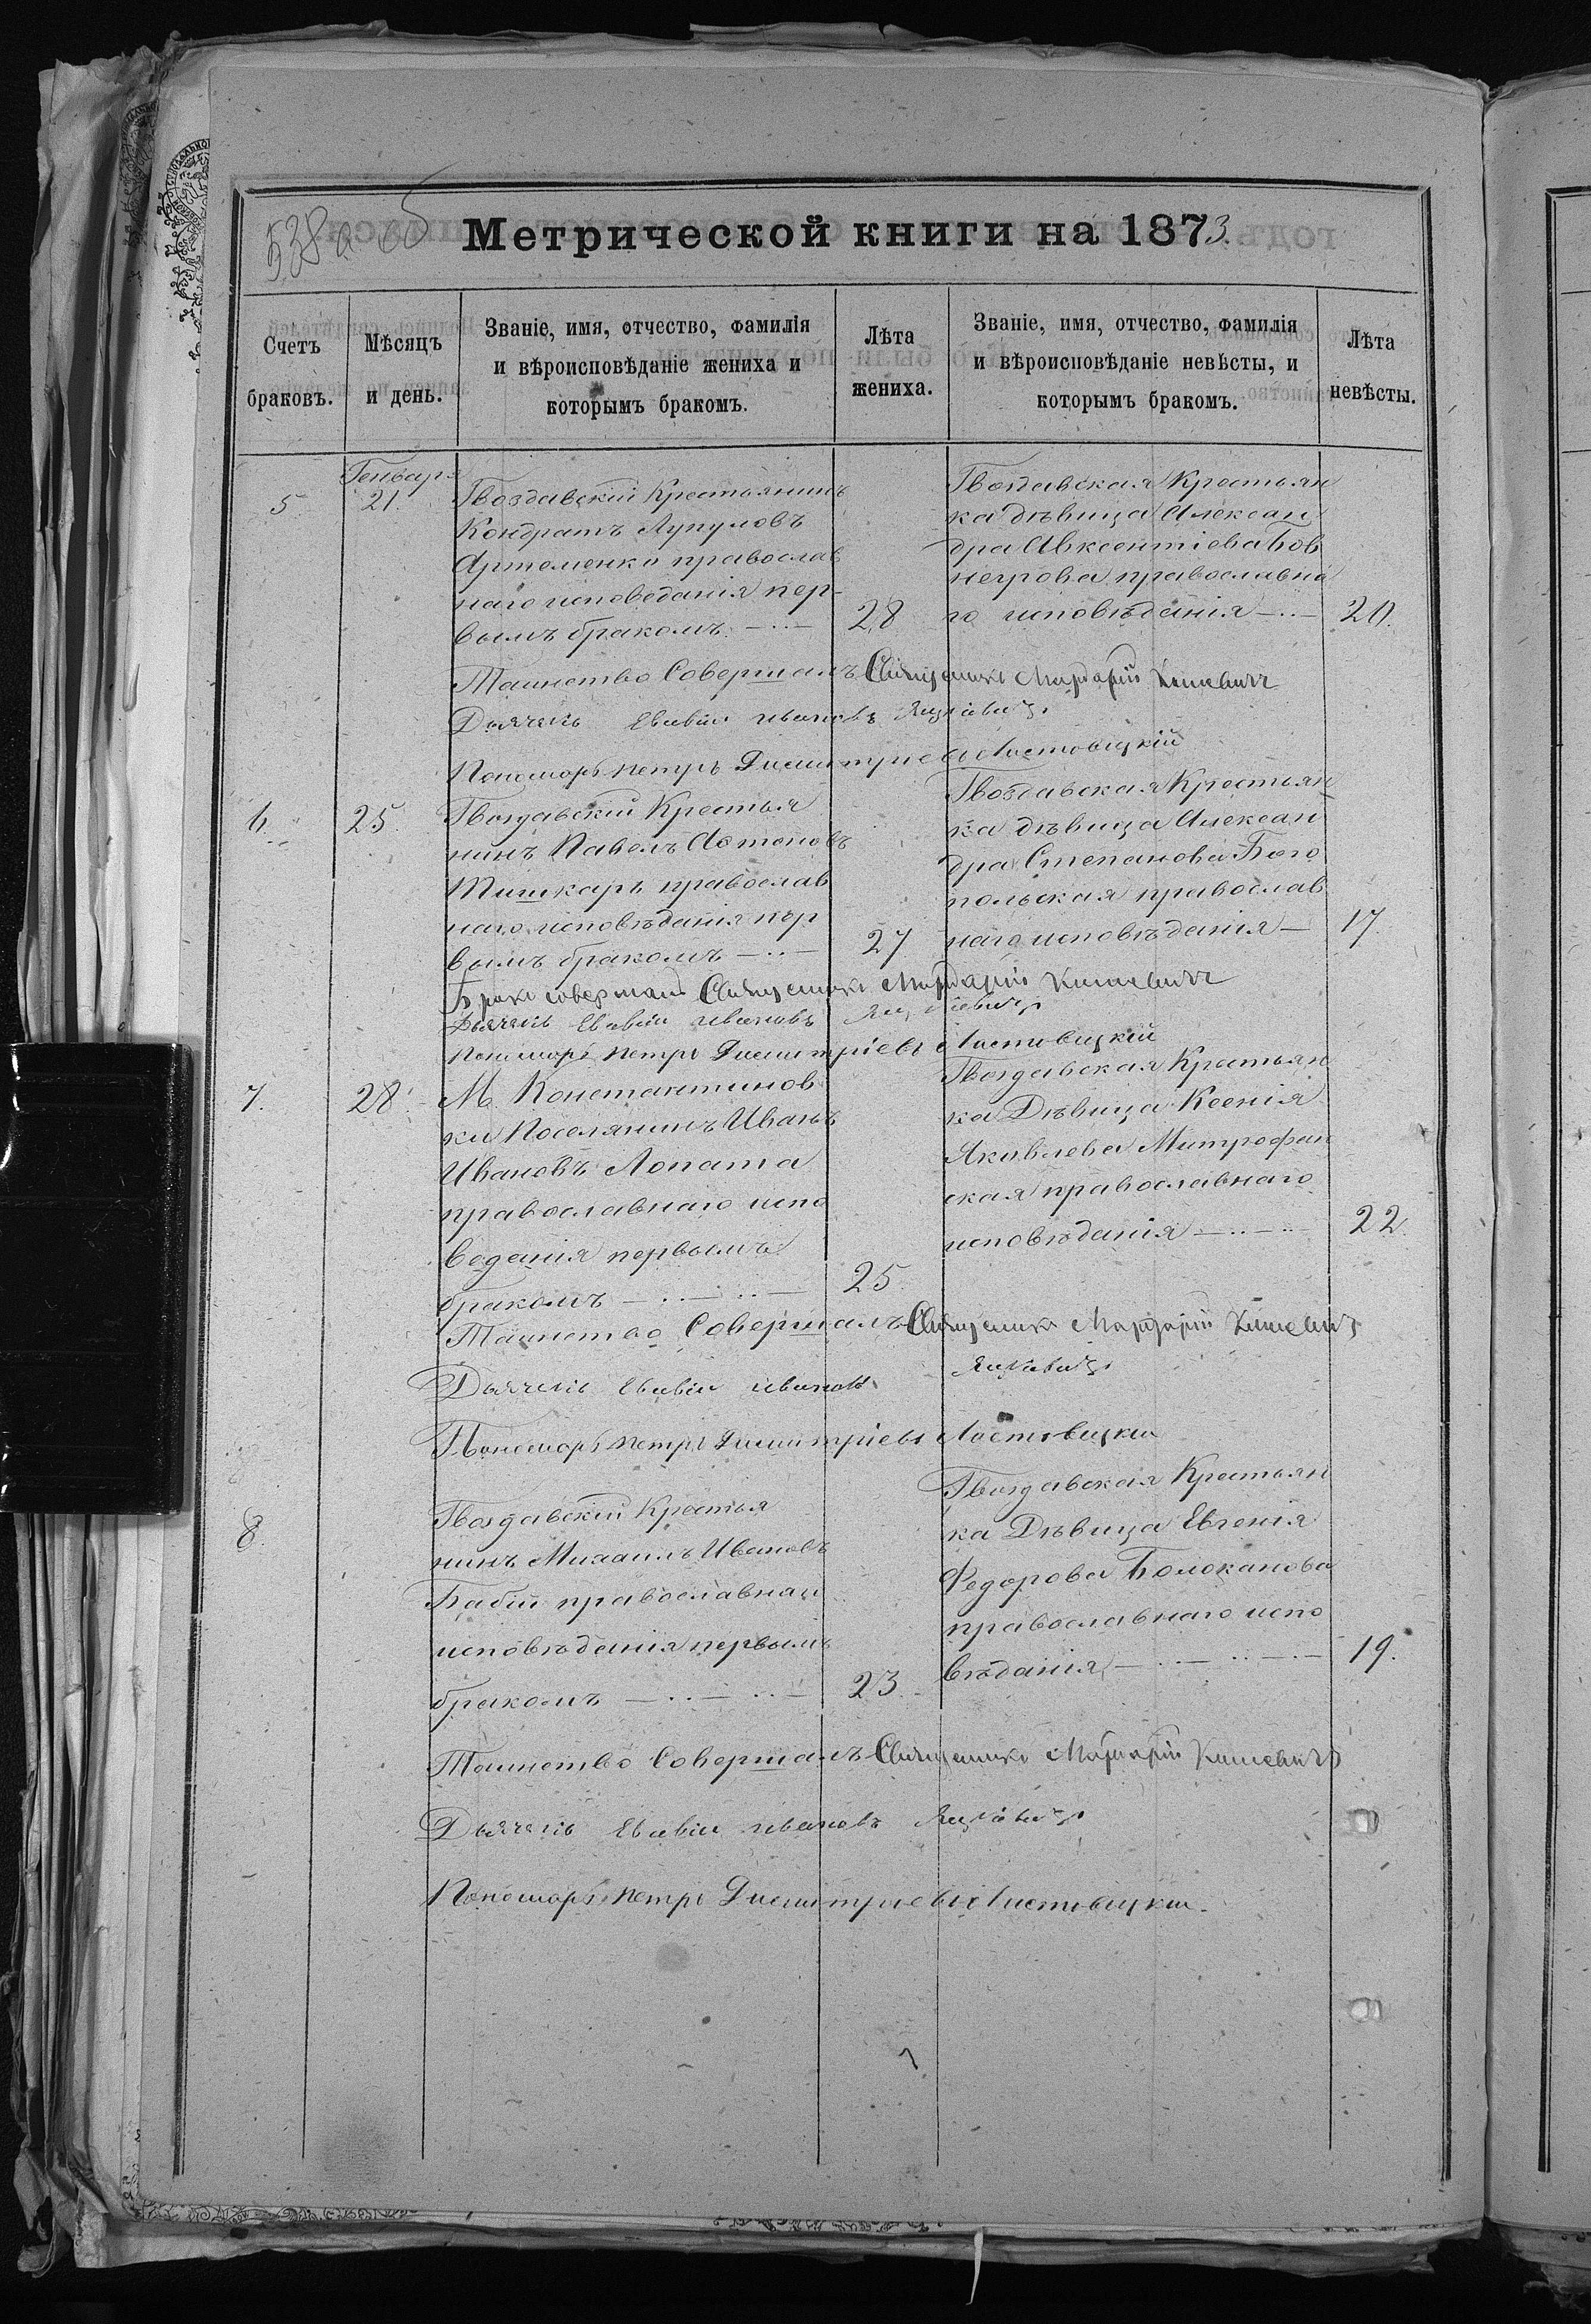 538 об
Метрической книги на 1873.
Счетъ браковъ.
Мѣсяцъ и день.
Званіе, имя, отчество, фамилія и вѣроисповѣданіе жениха и которымъ бракомъ.
Лѣта жениха.
Званіе, имя, отчество, фамилія и вѣроисповѣданіе невѣсты, и которымъ бракомъ.
Лѣта невѣсты.
5.
Генваря
21.
Гвоздавскій Крестьянинъ
Кондратъ Лупуловъ
Артеменко православ
наго исповеданія пер-
вымъ бракомъ
28
Гвоздавская Крестьян
ка дѣвица Алексан
дра Авксентіева Бов
негрова православна
го исповѣданія
20.
Таинство Совершалъ Священникъ Мардарій
Дьячекъ Евавіи Ивановъ
Пономарь Петръ Димитріевъ Листовицкій
6.
25.
Гвоздавскій Крестья
нинъ Павелъ Антоновъ
Тишкарь православ
наго исповѣданія пер
вымъ бракомъ
27
Гвоздавская Крестьян
ка дѣвица Алексан
дра Степанова Бого
польская православ
наго исповѣданія
17.
Бракъ совершалъ Священникъ Мардарій
Дьячекъ Евавіи Ивановъ
Пономарь Петръ Димитріевъ Листовицкій
7.
28.
М. Константинов
ки Поселянинъ Иванъ
Ивановъ Лопата
православнаго испо
веданія первымъ
бракомъ
25
Гвоздавская Крестьян
ка Дѣвица Ксенія
Яковлева Митрофан
ская православнаго
исповѣданія
22
Таинство Совершалъ Священникъ Мардарій
Дьячекъ Евавіи Ивановъ
Пономарь Петръ Димитріевъ Листовицкій
8.
Гвоздавскій Крестья
нинъ Михаилъ Ивановъ
Бабій православнаго
исповѣданія первымъ
бракомъ
23.
Гвоздавская Крестьян
ка Дѣвица Евгенія
Федорова Болоканова
православнаго испо
вѣданія
19.
Таинство Совершалъ Священникъ Мардарій
Дьячекъ Евавіи Ивановъ
Пономарь Петръ Димитріевъ Листовицкій